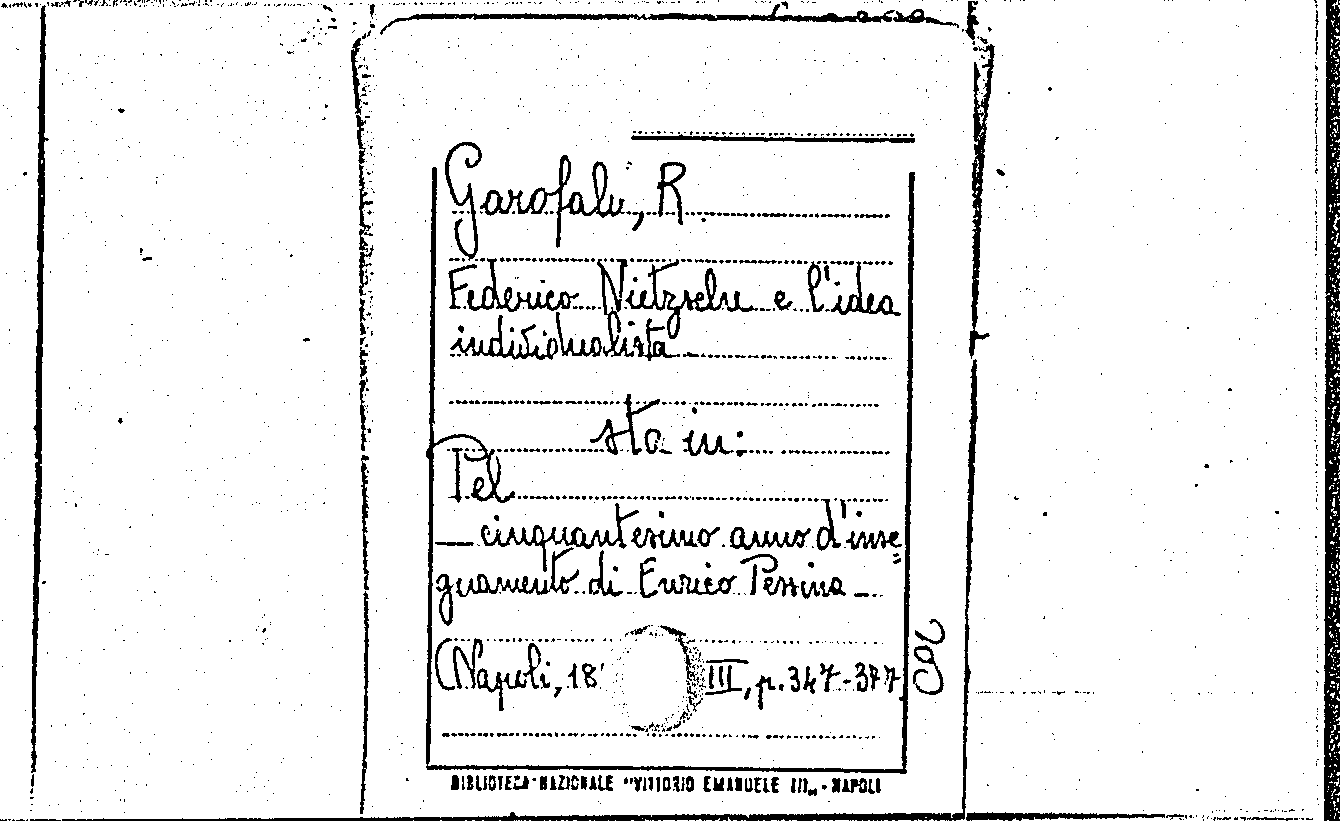 Garofalo, R.
Federico Nietzsche e l'idea
individualista
sta in:
Pel
— cinquantesimo anno d'inse
gnamento di Enrico Pessina —
(Napoli, 18 III, p. 347-377
BIBLIOTECA NAZIONALE "VITTORIO EMANUELE III" - NAPOLI